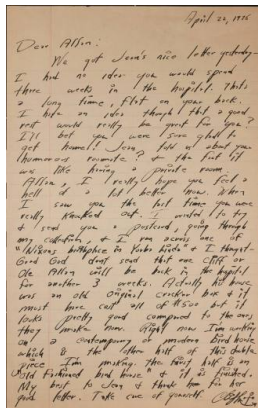 April 20, 1975
Dear Allen:
We got Jean's nice letter yesterday-
I had no idea you would spend
three weeks in the hospital. That's
a long time, flat on your back.
I have an idea though that a good
rest would really be great for you?
I'll bet you were sure glad to
get home! Jean told us about your
humorous roomate? & the fact it
was like having a private room.
Allen, I really hope you feel a
hell of a lot better now. When
I saw you the last time you were
really knocked out. I wanted to try
& send you a postcard, going through
my collection, & I ran across one
"Nixons birthplace in Yorba Linda & I thought-
Good God don't send this one Cliff or
Ole Allen will be back in the hospital
for another 3 weeks. Actually his house
was an old original cracker box & it
must have cost all of $500 but it
looks pretty good compared to the ones
they make now. Right now I'm working
on a contemporary or modern bird house
which is the other half of this double
piece I'm making. The first half is an
"old fashioned bird house" & it is finished.
My best to Jean & thank her for her
good letter. Take care of yourself.